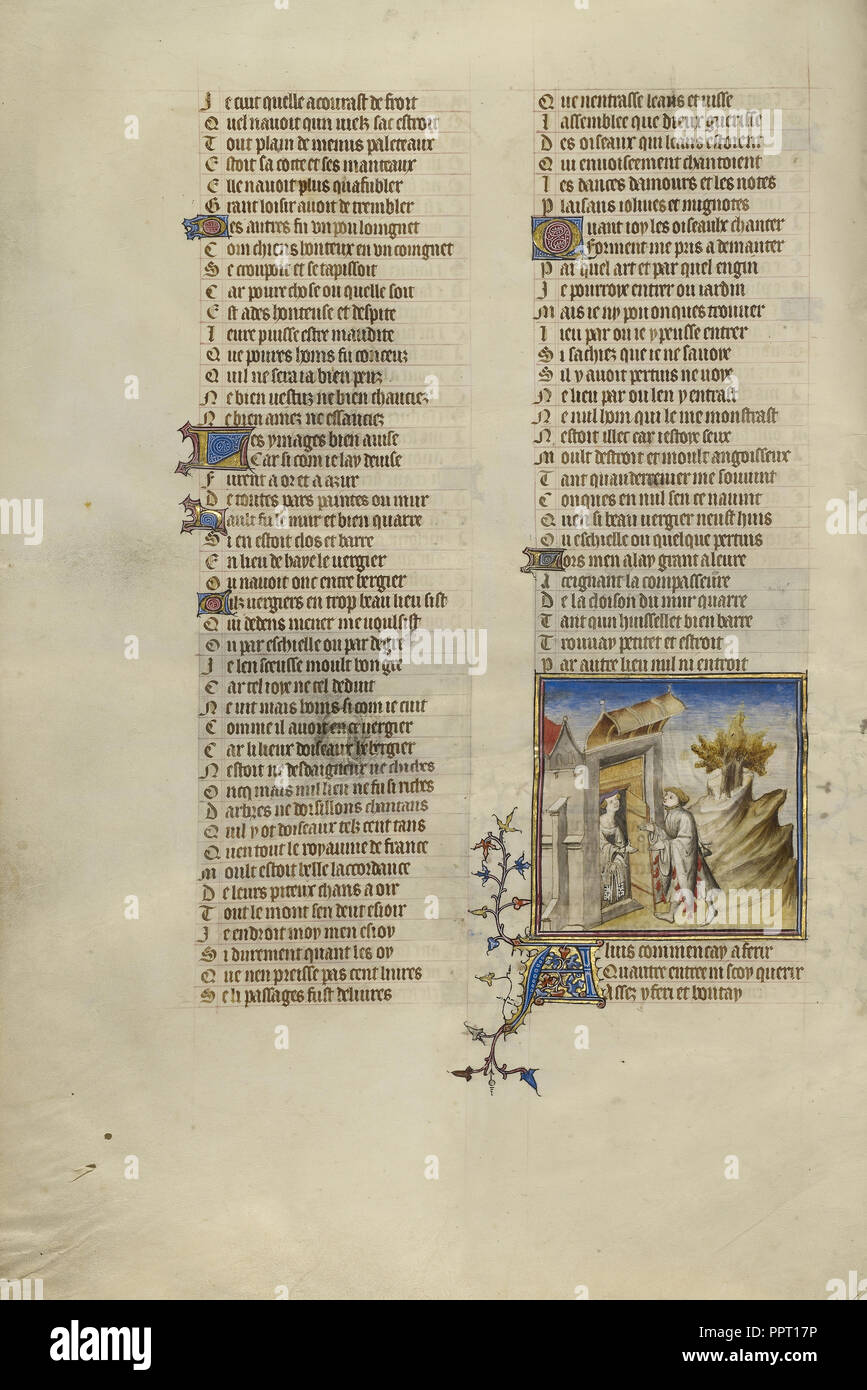 Je cuit quelle acourast de froit
Quel nauoit qun uielz sac estroit
Tout plain de menus paleteaux
Estoit sa cotte et ses manteaux
Elle nauoit plus quafubler
Grant loisir auoit de trembler
Des autres fu vn pou loingnet
Com chiens honteux en vn coingnet
Se croupoit et se tapissoit
Car poure chose ou quelle soit
Est ades honteuse et despite
Leure puisse estre maudite
Que poures homs fu conceuz
Quil ne sera ia bien peuz
Ne bien uestuz ne bien chauciez
Ne bien amez ne essauciez
Les ymages bien auise
Car si com ie lay deuise
Furent a or et a azur
De toutes pars paintes ou mur
Hault fu le mur et bien quarre
Si en estoit clos et barre
En lieu de haye le uergier
Ou nauoit onc entre bergier
Cilz uergiers en trop beau lieu sist
Qui dedens mener me uoulsist
Ou par eschielle ou par degre
Je len sceusse moult bon gre
Car tel ioye ne tel deduit
Ne uit mais homs si com ie cuit
Comme il auoit en ce uergier
Car li lieux doiseaux herbergier
Nestoit ne desdaigneux ne chiches
Oncq mais nul lieu ne fu si riches
Darbres ne doisillons chantans
Quil y ot doiseaux telz cent tans
Quen tout le royaume de france
Moult estoit belle laccordance
De leurs piteux chans a oir
Tout le mont sen deut esioir
Je endroit moy men esioy
Si durement quant les oy
Que nen preisse pas cent liures
Se li passages fust deliures
Que nentrasse leans et uisse
Lassemblee que dieux guerisse
Des oiseaux qui leans estoient
Qui enuoisement chantoient
Les dances damours et les notes
Plaisans ioliues et mignotes
Quant ioy les oiseaulx chanter
Forment me pris a demanter
Par quel art et par quel engin
Je pourroye entrer ou iardin
Mais ie ny pou onques trouuer
Lieu par ou ie y peusse entrer
Si sachiez que ie ne sauoye
Sil y auoit pertuis ne uoye
Ne lieu par ou len y entrast
Ne nul hom qui le me monstrast
Nestoit illec car iestoye seux
Moult destroit et moult angoisseux
Tant quanderrenier me souuint
Conques en nul sen ce nauint
Quen si beau uergier neust huis
Ou eschielle ou quelque pertuis
Lors men alay grant aleure
Aceignant la compasseure
De la cloison du mur quarre
Tant qun huissellet bien barre
Trouuay petitet et estroit
Par autre lieu nul ni entroit
A luis commencay a ferir
Quautre entree ni scoy querir
Assez y feri et boutay
alamy
Image ID: PPT17P
www.alamy.com